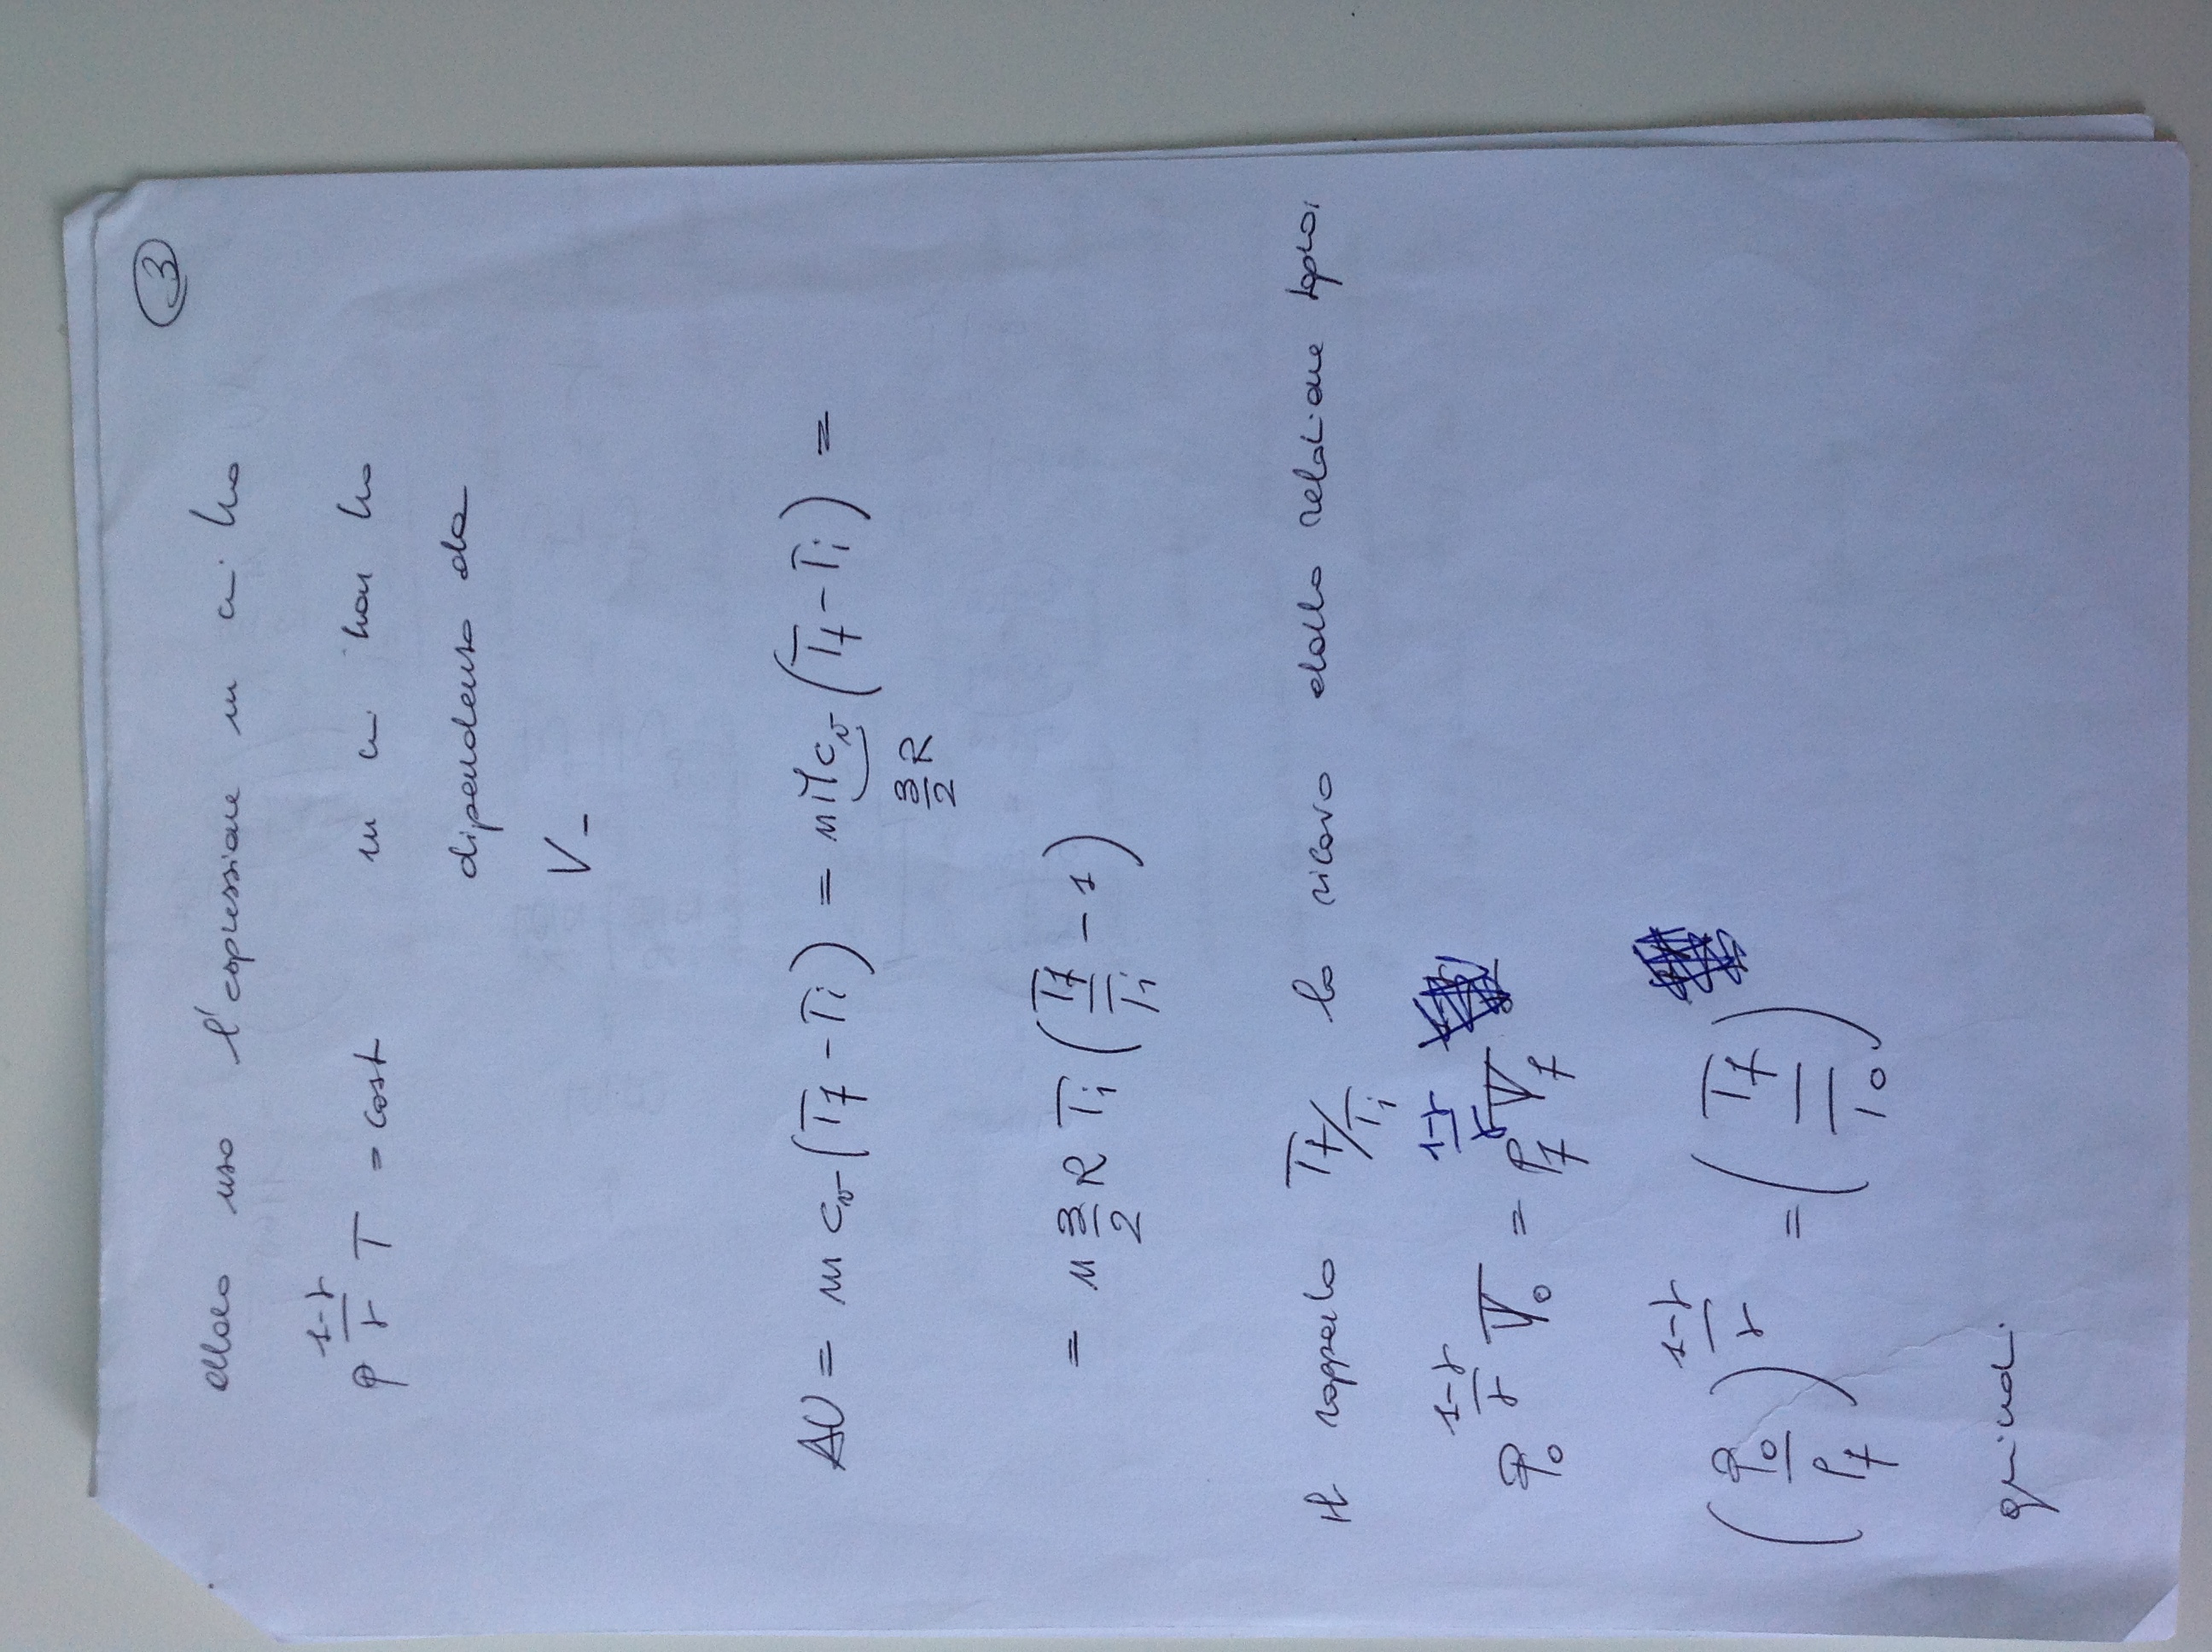 3
allora uso l'espressione in cui ho
p^{\frac{1-γ}{γ}} T = cost in cui non ho
dipendenza da
V_
ΔU = m c_v (T_f - T_i) = n M c_v (T_f - T_i) =
\frac{3}{2} R
= n \frac{3}{2} R T_i (\frac{T_f}{T_i} - 1)
il rapporto T_f/T_i lo ricavo dalla relazione sopra:
p_0^{\frac{1-γ}{γ}} T_0 = p_f^{\frac{1-γ}{γ}} T_f
(\frac{p_0}{p_f})^{\frac{1-γ}{γ}} = (\frac{T_f}{T_0})
quindi